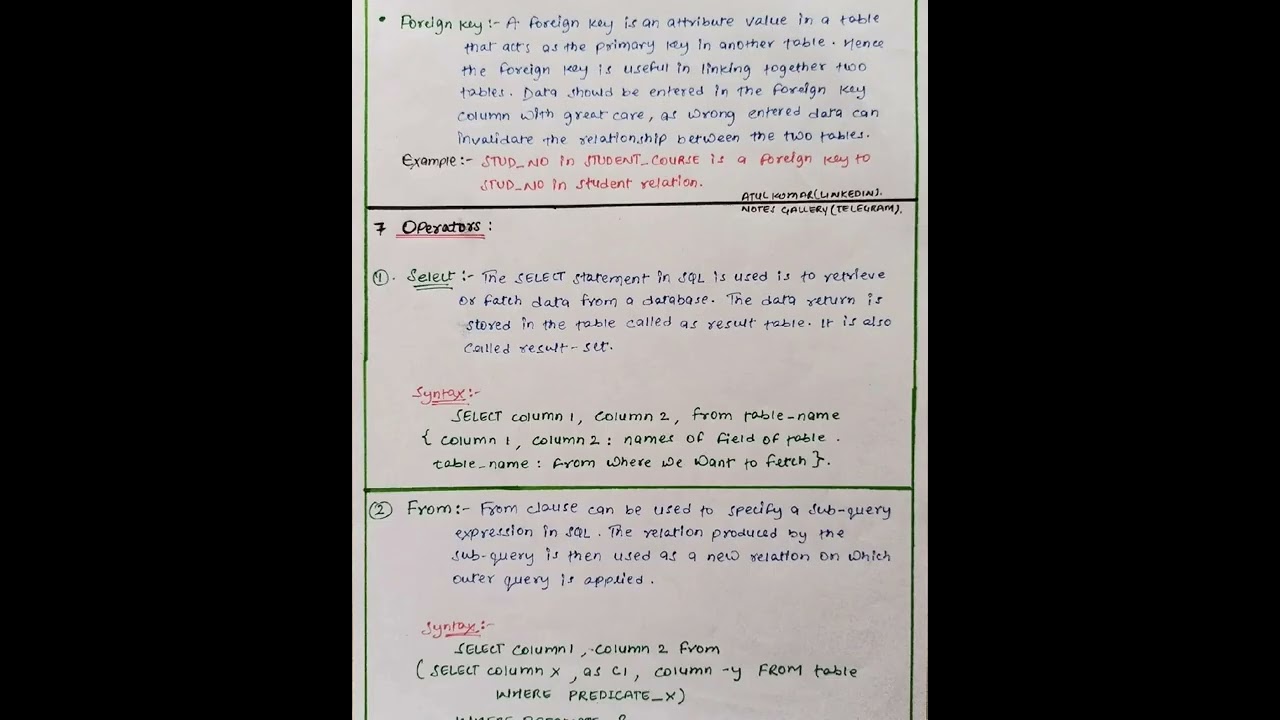 • Foreign key :- A foreign key is an attribute value in a table
that acts as the primary key in another table. Hence
the foreign key is useful in linking together two
tables. Data should be entered in the foreign key
column with great care, as wrong entered data can
invalidate the relationship between the two tables.
Example :- STUD_NO in STUDENT_COURSE is a foreign key to
STUD_NO in student relation.
ATUL KUMAR (LINKEDIN).
NOTES GALLERY (TELEGRAM).
7 Operators :
① . Select :- The SELECT statement in SQL is used is to retrieve
or fatch data from a database. The data return is
stored in the table called as result table. It is also
called result-set.
Syntax :-
SELECT column 1, column 2, from table-name
{ column 1, column 2 : names of field of table .
table_name : from where we want to fetch } .
② From :- From clause can be used to specify a sub-query
expression in SQL . The relation produced by the
sub-query is then used as a new relation on which
outer query is applied .
Syntax :-
SELECT column1 , column 2 from
( SELECT column x , as C1, column -y FROM table
WHERE PREDICATE_X)
WHERE